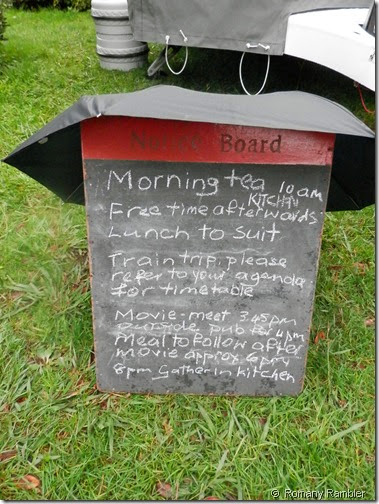 Notice Board
Morning tea 10am
KITCHEN
Free time afterwards
Lunch to suit
Train trip: please
refer to your agenda
for timetable
Movie: meet 3.45pm
outside pub for 4pm
Meal to follow after
movie approx 6pm
8pm Gather in kitchen
© Romany Rambler